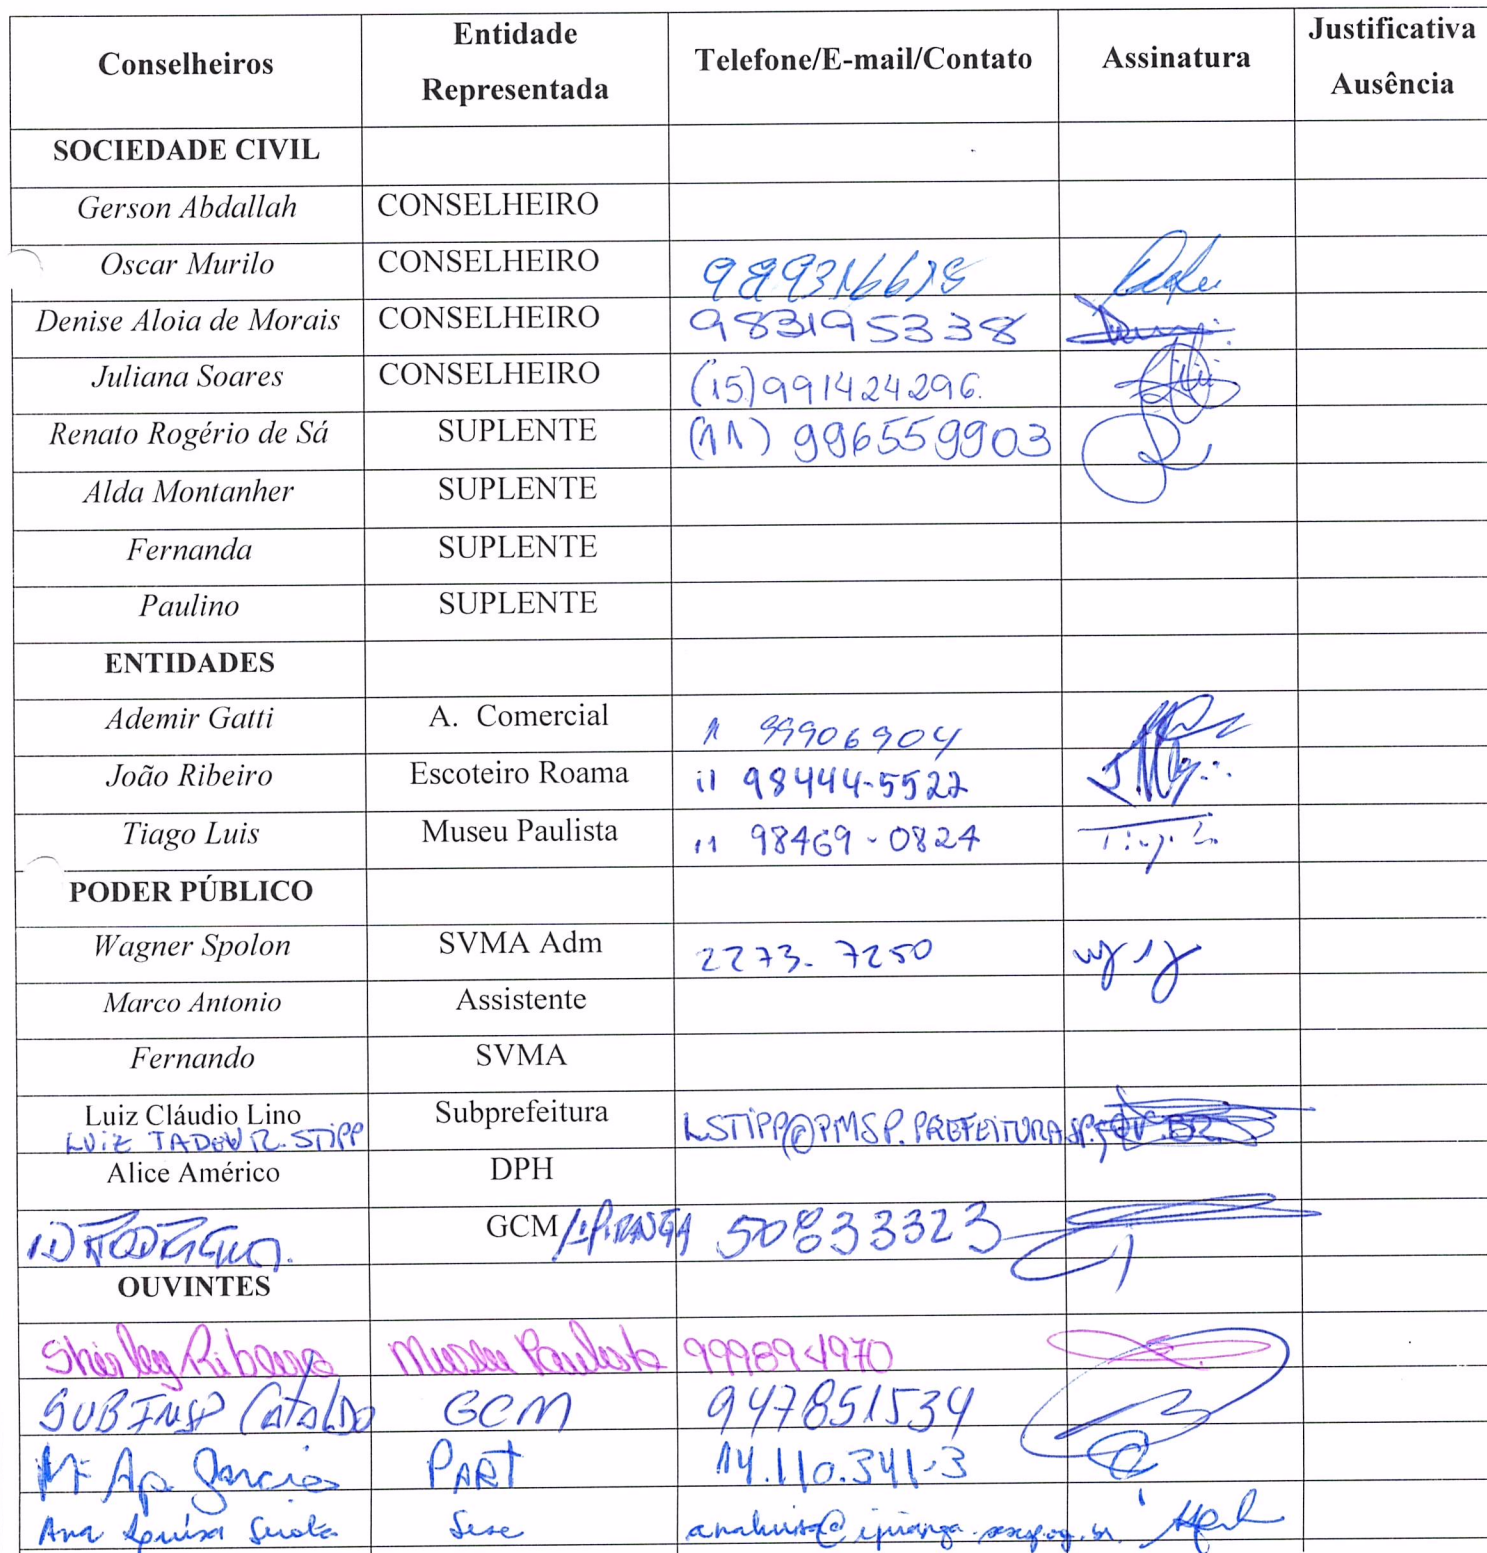 Conselheiros Entidade Representada Telefone/E-mail/Contato Assinatura Justificativa Ausência
SOCIEDADE CIVIL
Gerson Abdallah CONSELHEIRO
Oscar Murilo CONSELHEIRO 989316618
Denise Aloia de Morais CONSELHEIRO 983195338
Juliana Soares CONSELHEIRO (15)991424296.
Renato Rogério de Sá SUPLENTE (11) 996559903
Alda Montanher SUPLENTE
Fernanda SUPLENTE
Paulino SUPLENTE
ENTIDADES
Ademir Gatti A. Comercial 99906904
João Ribeiro Escoteiro Roama 11 98444-5522
Tiago Luis Museu Paulista 11 98469-0824
PODER PÚBLICO
Wagner Spolon SVMA Adm 2273-7250
Marco Antonio Assistente
Fernando SVMA
Luiz Cláudio Lino Subprefeitura LSTIPP@PMSP.PREFEITURA.SP.GOV.BR
LUIZ TADEU R. STIPP
Alice Américo DPH
GCM /IPIRANGA 50833323
OUVINTES
Shirley Ribeiro Museu Paulista
SUBINSP CATALDO GCM 947851534
Mª Ap. Garcia PART 14.110.341-3
Ana Louisa Sesc